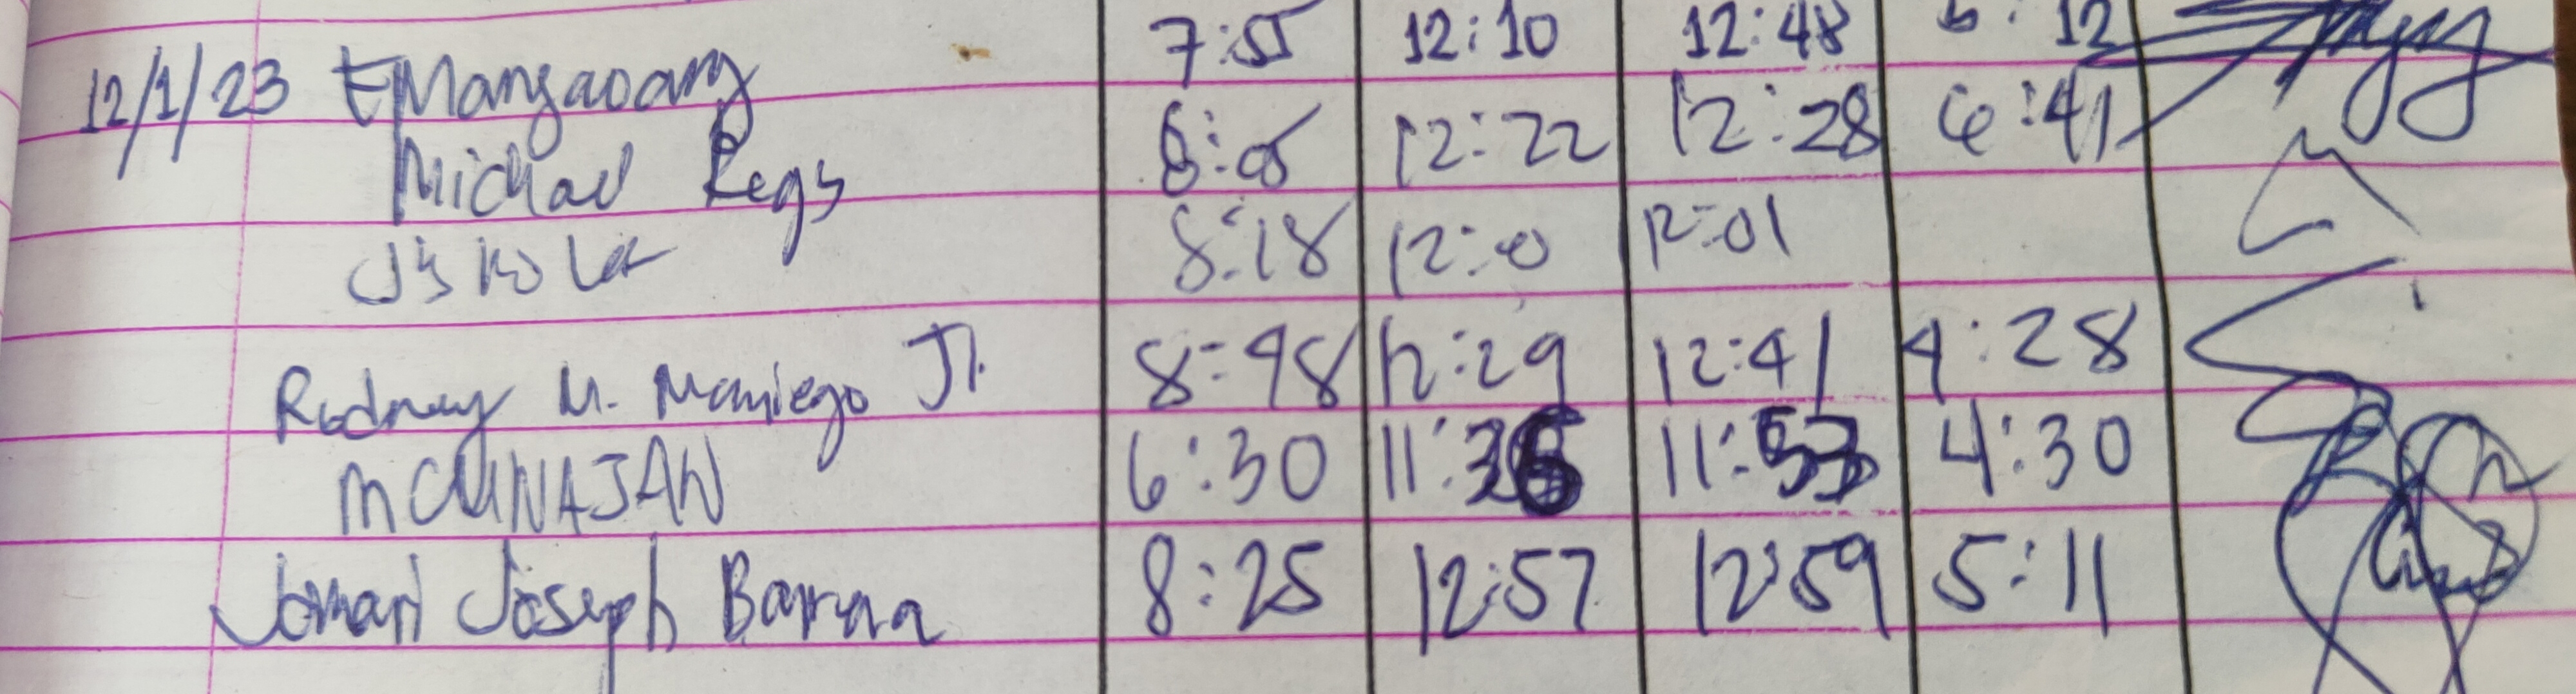 12/1/23 EMangaoang 7:55 12:10 12:48 6:12
Michael Regs 8:05 12:22 12:28 6:41
8:18 12:0 12:01
Rodney M. Maniego Jr. 8:48 12:29 12:41 4:28
MCMNAJAN 6:30 11:36 11:53 4:30
Jomari Joseph Barma 8:25 12:57 12:59 5:11